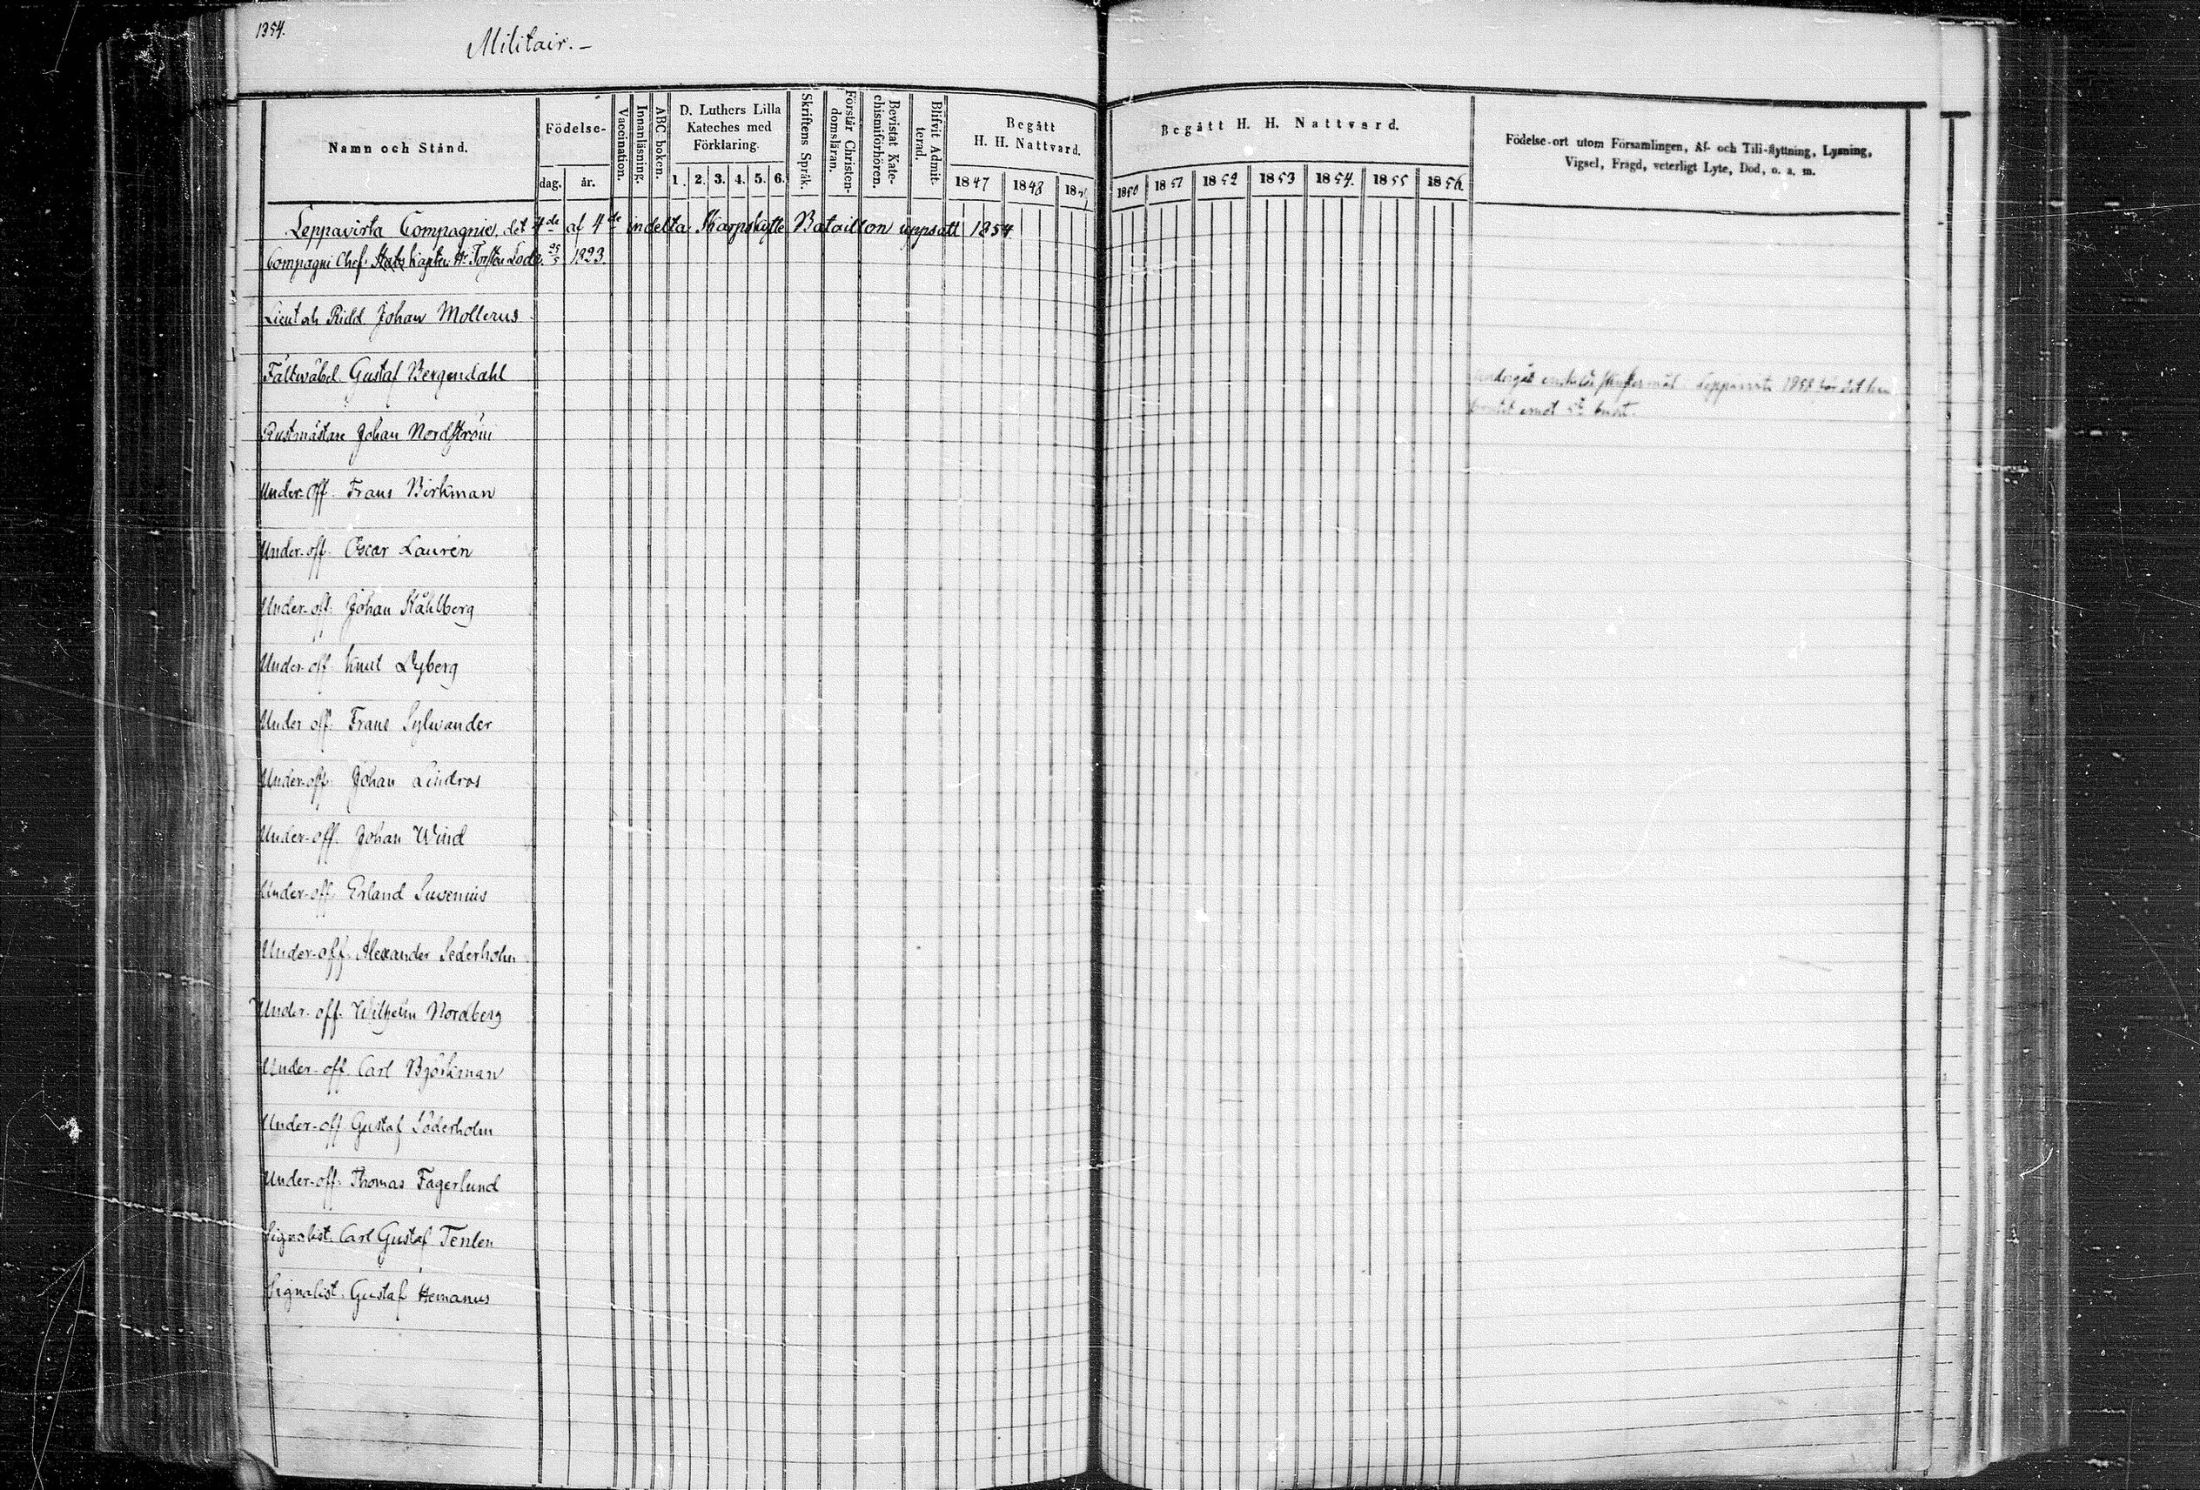 1354.
Militair. –
Namn och Stånd.
Födelse-
dag.
år.
Vaccination.
Innanläsning.
ABC-boken.
D. Luthers Lilla
Kateches med
Förklaring.
1. 2. 3. 4. 5. 6.
Skriftens Språk.
Förstår Christen-
domsläran.
Bevistat Kate-
chismiförhören.
Blifvit Admit-
terad.
Begått
H. H. Nattvard.
1847 1848
Begått H. H. Nattvard.
1850 1851 1852 1853 1854. 1855 1856
Födelse-ort utom Församlingen, Af- och Till-flyttning, Lysning,
Vigsel, Frägd, veterligt Lyte, Död, o. a. m.
Leppavirta Compagnie, det 4de af 4de indelta Skarpskytte Bataillon uppsatt 1854
Compagni Chef. 25/5 1823.
Lieut och Ridd Johan Mollerus
Fältwäbel. Gustaf Bergendahl
Leppävirta 1858
Rustmästare Johan Nordström
Under-off. Frans Birkman
Under-off. Oscar Laurén
Under-off. Johan Ståhlberg
Under-off Knut Dyberg
Under off. Frans Sylwander
Under-off. Johan Lindros
Under-off. Johan Wind
Under-off. Erland Suvenius
Under-off. Alexander Sederholm
Under-off. Wilhelm Nordberg
Under-off. Carl Björkman
Under-off Gustaf Söderholm
Under-off. Thomas Fagerlund
Signalist. Carl Gustaf Tenlen
Signalist. Gustaf Hemanus